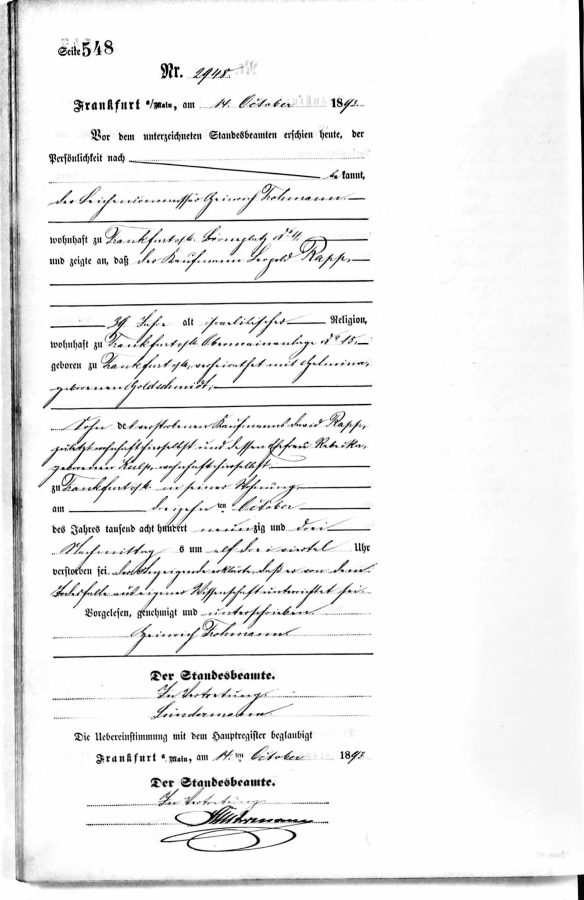 Seite 548
Nr. 2948.
Frankfurt a/Main, am 14. October 1893.
Vor dem unterzeichneten Standesbeamten erschien heute, der
Persönlichkeit nach
be kannt,
der Leichencommissär Heinrich Trohmann
wohnhaft zu Frankfurt a/M. Börneplatz No 4,
und zeigte an, daß der Kaufmann Leopold Rapp,
39 Jahre alt israelitischer Religion,
wohnhaft zu Frankfurt a/M. Obermainanlage No 15,
geboren zu Frankfurt a/M., verheirathet mit
geborenen Goldschmidt,
Sohn des verstorbenen Kaufmanns David Rapp,
zuletzt wohnhaft hierselbst und dessen Ehefrau Rebekka,
geborenen Kulp, wohnhaft hierselbst
zu Frankfurt a/M. in seiner Wohnung,
am dreizehn ten October
des Jahres tausend acht hundert neunzig und drei
Nachmittag s um elf drei viertel Uhr
verstorben sei. Der Anzeigende erklärte, daß er von dem
Todesfalle aus eigener Wissenschaft unterrichtet sei.
Vorgelesen, genehmigt und unterschrieben
Heinrich Trohmann
Der Standesbeamte.
In Vertretung
Lindermann
Die Uebereinstimmung mit dem Hauptregister beglaubigt
Frankfurt a. Main, am 14. ten October 1893
Der Standesbeamte.
In Vertretung